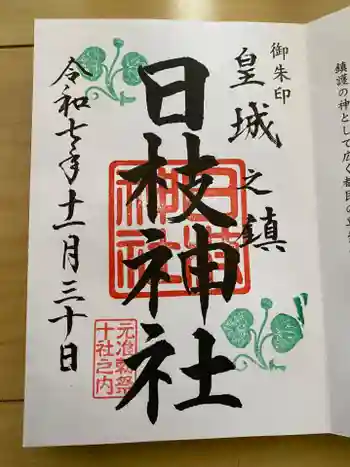 御朱印
皇城之鎮
日枝神社
日枝神社
令和七年十一月三十日
元准勅祭
十社之内
鎮護の神として広く都民の